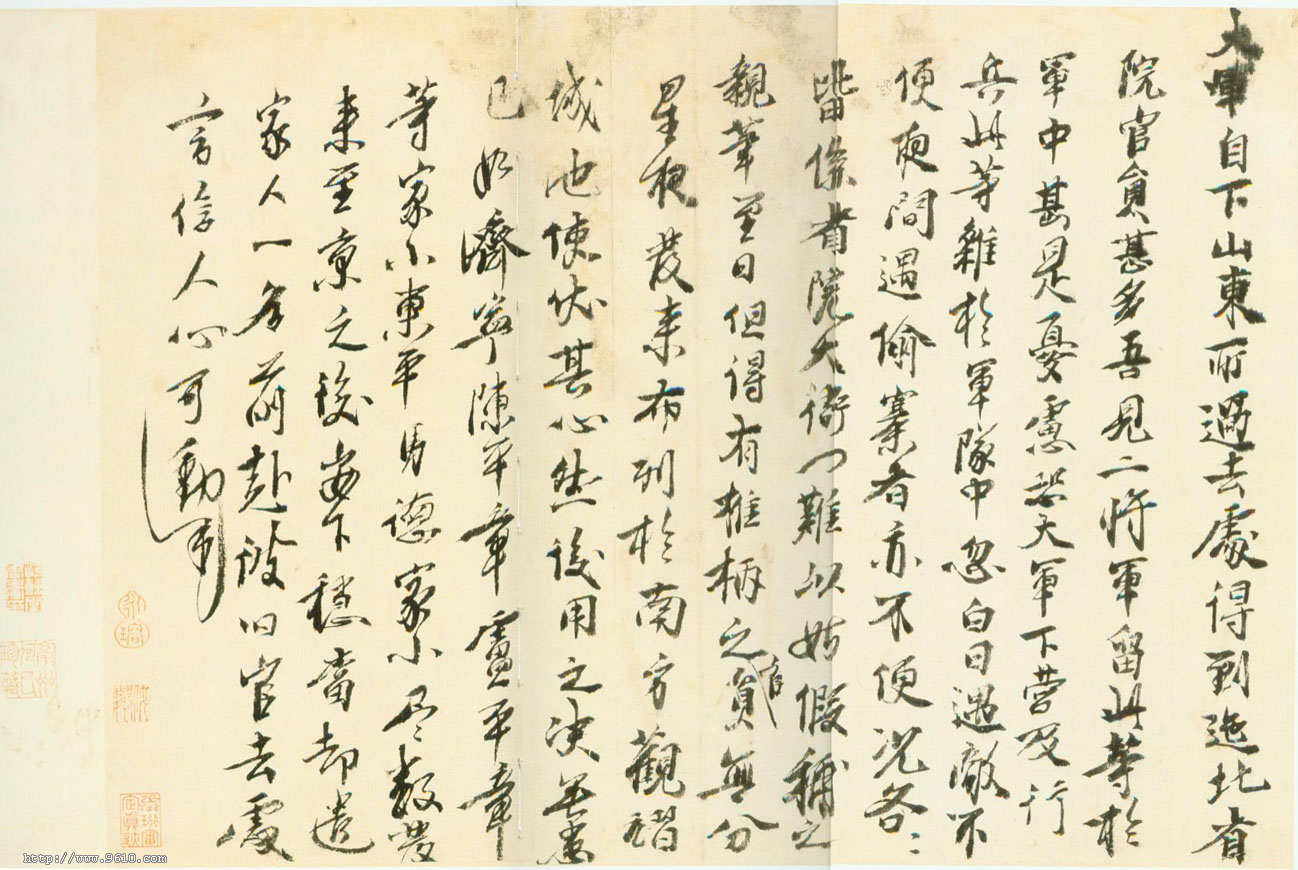 大軍自下山東所過去處得到迤北省
院官員甚多吾見二將軍留此等於
軍中甚是憂慮恐大軍下營及行
兵此等雜於軍隊中忽白日遇敵不
便夜間遇偷寨者亦不便況各〻
皆係省院大衙門難以姑假補之
親筆至日但得有椎柄之官員無分
星夜發來布列於南方觀
城池使伏其心然後用之決無患
已如濟寧陳平章盧平章
等家小東平馬德家小尽数發
來至京之後安下穩當却遣
家人一名前赴彼旧官去處
言信人心可動
http://www.9610.com/